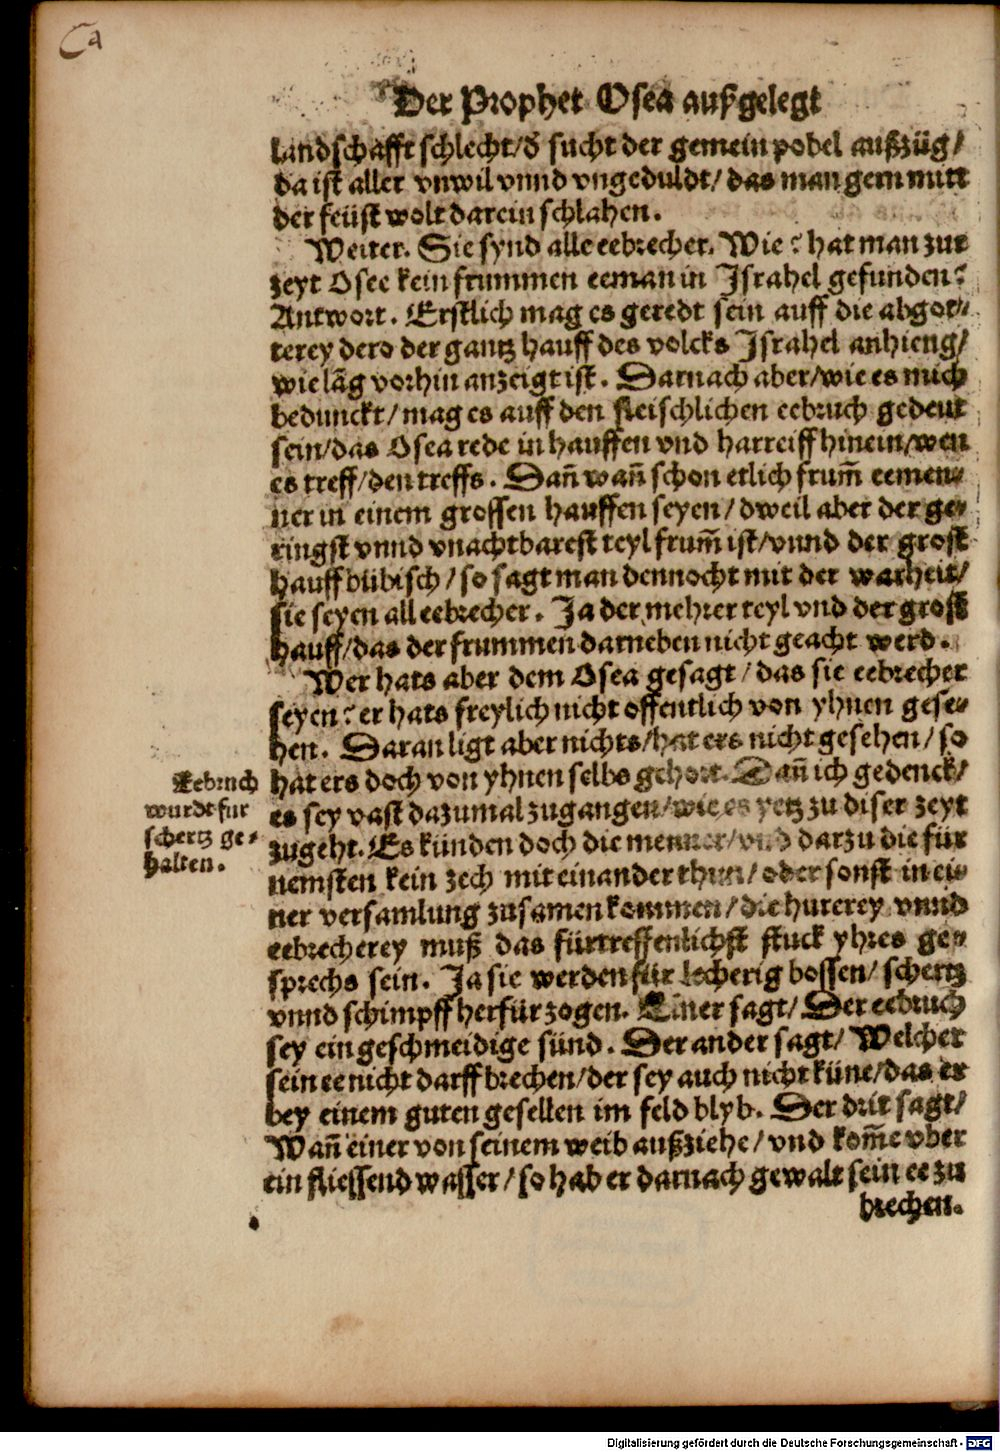 Ca
Der Prophet Osea außgelegt
landschafft schlecht/ď sucht der gemein pobel außzüg/
da ist aller vnwil vnnd vngeduldt/ das man gern mitt
der feüst wolt darein schlahen.
Weiter. Sie synd alle eebrecher. Wie? hat man zur
zeyt Osee kein frummen eeman in Israhel gefunden?
Antwort. Erstlich mag es geredt sein auff die abgot⸗
terey dero der gantz hauff des volcks Israhel anhieng/
wie lãg vorhin anzeigt ist. Darnach aber/wie es mich
bedunckt/ mag es auff den fleischlichen eebruch gedeut
sein/das Osea rede in hauffen vnd harreiff hinein/wen
es treff/den treffs. Dañ wañ schon etlich frum̃ eemen⸗
ner in einem grossen hauffen seyen/ dweil aber der ge⸗
ringst vnnd vnachtbarest teyl frum̃ ist/vnnd der grost
hauff bübisch/ so sagt man dennocht mit der warheit/
sie seyen all eebrecher. Ja der mehrer teyl vnd der grost
hauff/das der frummen darneben nicht geacht werd.
Wer hats aber dem Osea gesagt/ das sie eebrecher
seyen? er hats freylich nicht offentlich von yhnen gese⸗
hen. Daran ligt aber nichts/hat ers nicht gesehen/ so
hat ers doch von yhnen selbs gehort. Dañ ich gedenck/
es sey vast dazumal zugangen/wie es yetz zu diser zeyt
zugeht. Es künden doch die menner/vnd darzu die für
nemsten kein zech mit einander thun/ oder sonst in ei⸗
ner versamlung zusamen kommen/ die hurerey vnnd
eebrecherey muß das fürtreffenlichst stuck yhres ge⸗
sprechs sein. Ja sie werden für lecherig bossen/ schertz
vnnd schimpff herfür zogen. Einer sagt/ Der eebruch
sey ein geschmeidige sünd. Der ander sagt/ Welcher
sein ee nicht darff brechen/der sey auch nicht küne/das er
bey einem guten gesellen im feld blyb. Der drit sagt/
Wañ einer von seinem weib außziehe/ vnd kom̃e vber
ein fliessend wasser/ so hab er darnach gewalt sein ee zu
brechen.
Eebruch
wurdt fur
schertz ge⸗
halten.
Digitalisierung gefördert durch die Deutsche Forschungsgemeinschaft - DFG